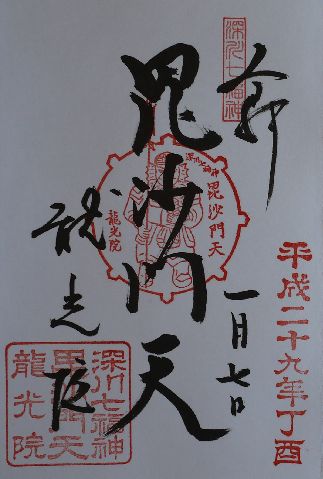 深川七福神
奉拝
平成二十九年丁酉
一月七日
毘沙門天
深川七福神
毘沙門天
龍光院
龍光院
深川七福神
毘沙門天
龍光院